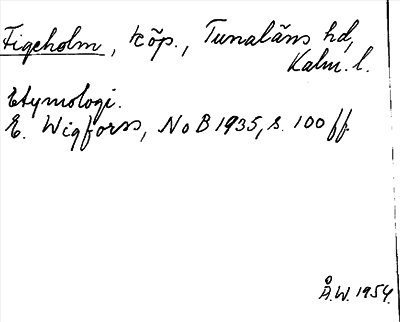 Figeholm, köp., Tunaläns hd,
Kalm. l.
Etymologi.
E. Wigforss, NoB 1935, s. 100 ff
Å.W. 1954.